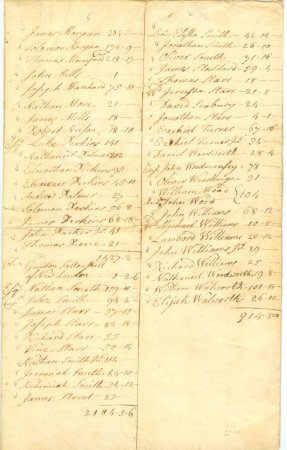 James Morgan 204
Solomon Morgan 174-9
Thomas Mumford 218-17
John Mills
Joseph Minhard 75-10
Nathan More 21
James Mills 18
Robert Nixon 78-10
Luke Perkins 141
Nathaniel Palmer 202
Jonathan Perkins 93
Ebenezer Perkins 45-10
Andrew Palmer 27
Solomon Perkins 56-8
James Perkins 68-15
John Perkins Jr 41
Thomas Pierce 21
1427-2
Gurdon Saltonstall
of New London 1-2-6
Nathan Smith 109-10
Jabez Smith 94-2
James Starr 39-10
Joseph Starr 88-18
Richard Starr 55
Vine Starr 50-4
Nathan Smith Jr 114
Jeremiah Smith 44-10
Nehemiah Smith 94-12
James Street 89
2184-5-6
Elisha Smith 44-12
Jonathan Smith 26-10
Oliver Smith 71-16
James Stoddard 59-4
Thomas Starr 18
Jerusha Starr 21-8
David Seabury 24
Jonathan Starr 4-1
Ezekiel Turner 67-16
Ezekiel Turner Jr 74
Daniel Woodworth 28-4
John Woodmansy 73
Oliver Woodbridge 21
William Wood
John Wood 104
John Williams 68-12
Michael Williams 10-8
Lambard Williams 20-12
John Williams Jr 29
Richard Williams 25
Nathaniel Woodworth 19-8
William Walworth 101-18
Elijah Walworth 26-10
914-8-0